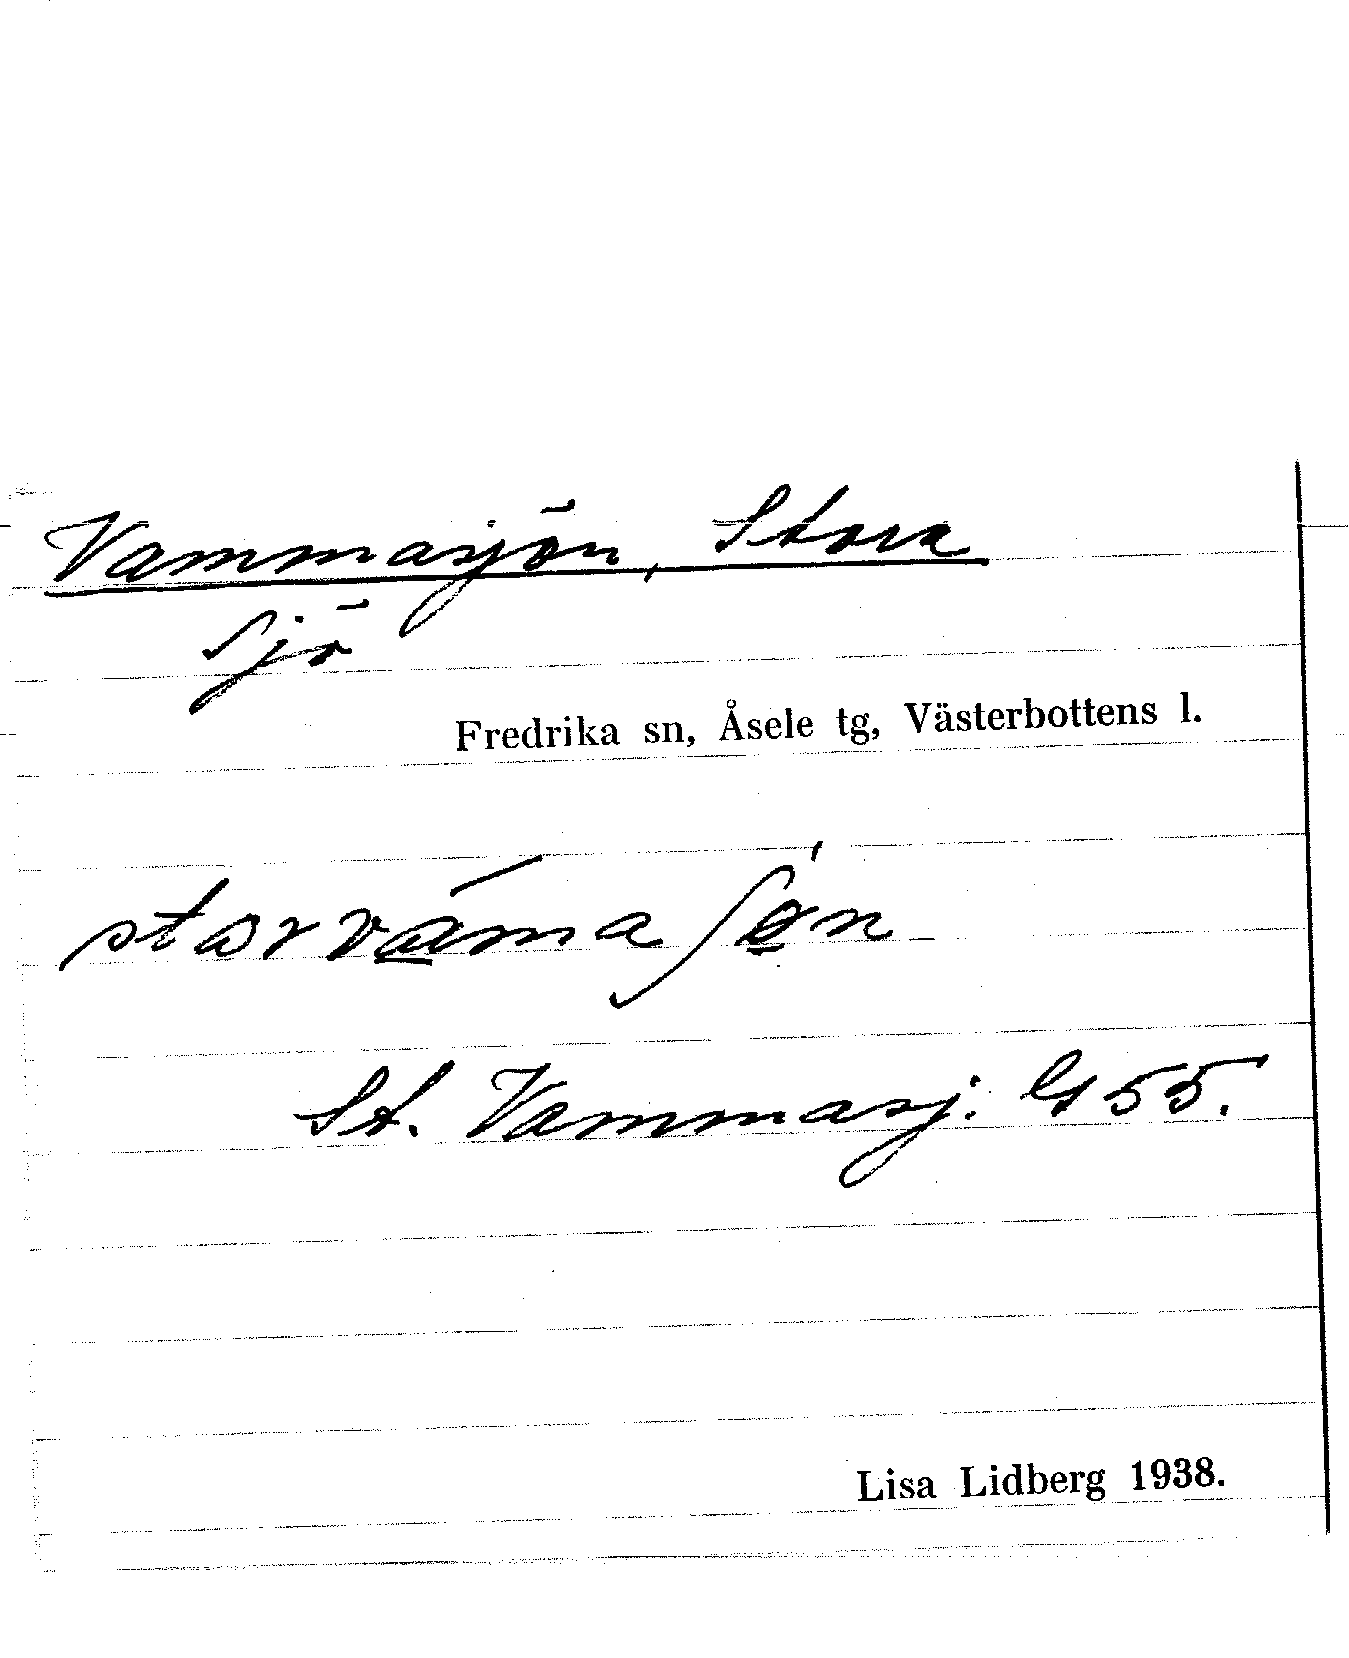 Vammasjön, Stora
Sjö
Fredrika sn, Åsele tg, Västerbottens l.
storváma ʃǿn
St. Vammasj. G 55.
Lisa Lidberg 1938.